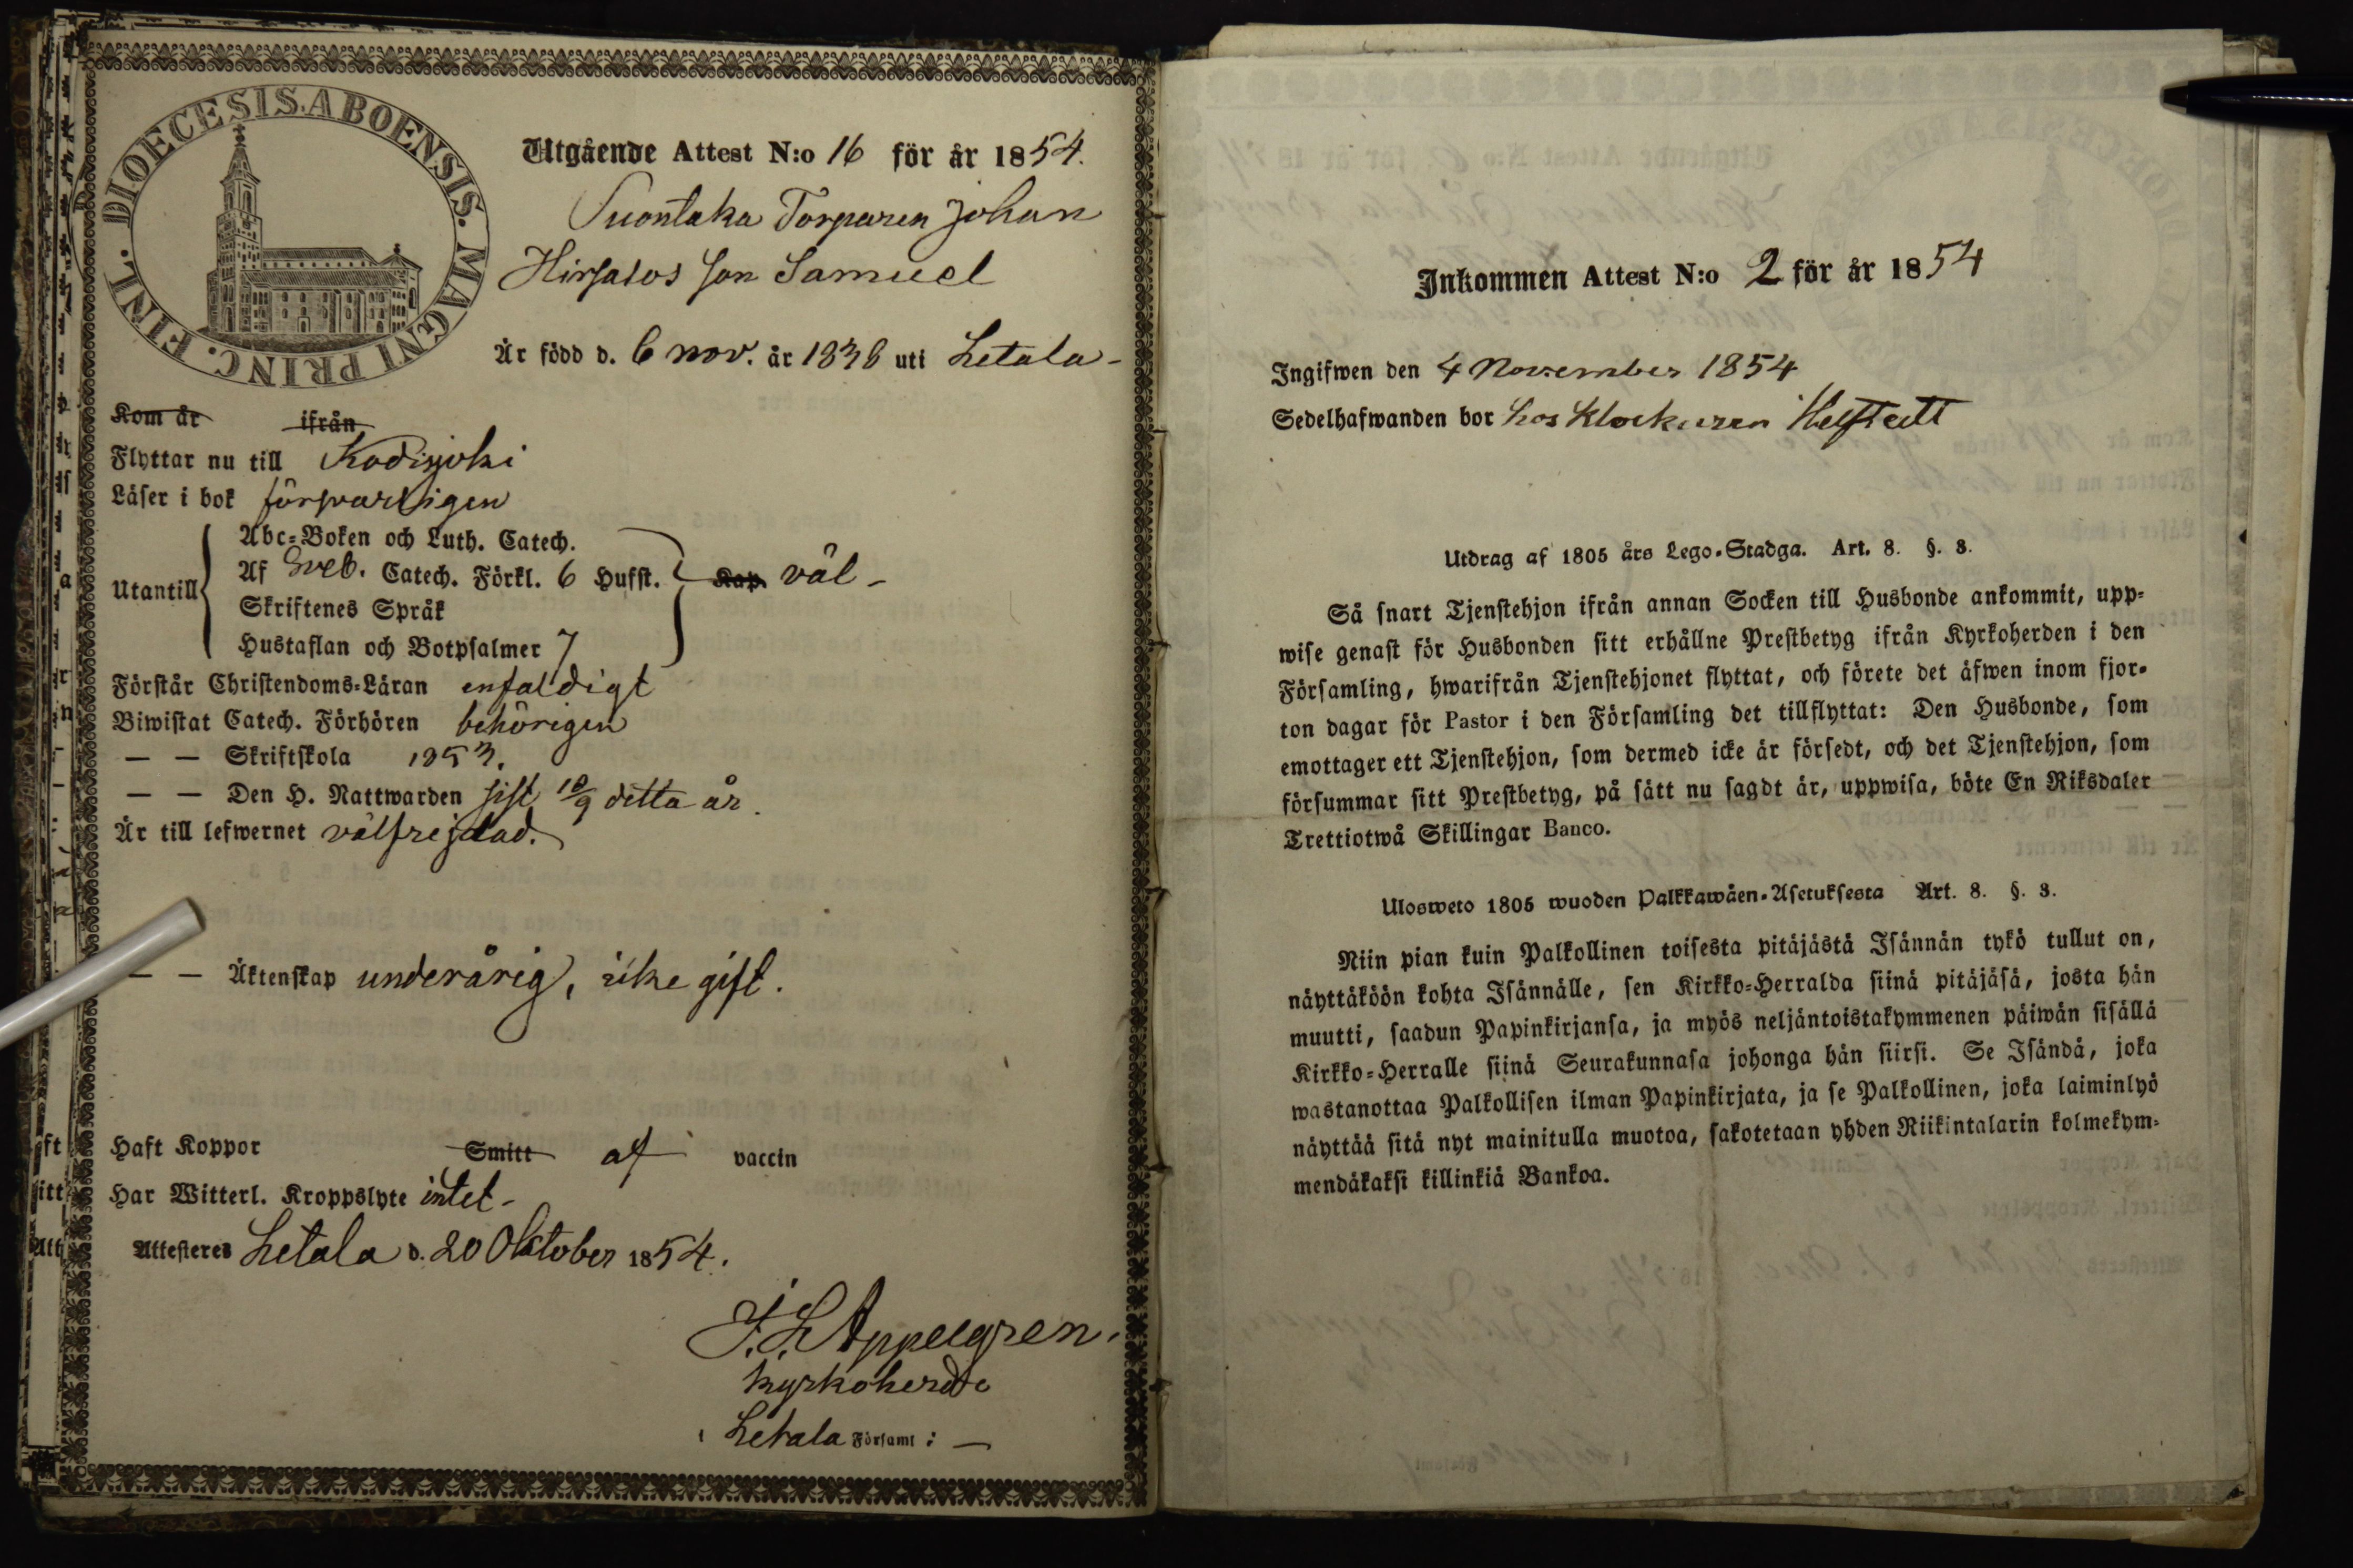 DIOECESIS.ABOENSIS. MAGNI PRINC. FINL.
Utgående Attest N:o 16 för år 1854.
Suontaka Torparen Johan
Hirsalos son Samuel
Är född d. 6 nov. år 1838 uti Letala-
Kom år ifrån
Flyttar nu till Kodisjoki
Läser i bok försvarligen
Utantill
Abc-Boken och Luth. Catech.
Af Sveb. Catech. Förkl. 6 Hufst. Kap. väl -
Skriftenes Språk
Hustaflan och Botpsalmer 7
Förstår Christendoms-Läran enfaldigt
Biwistat Catech. Förhören behörigen
— — Skriftskola 1853.
— — Den H. Nattwarden sist 10/9 detta år.
Är till lefwernet välfrejdad.
— — Äktenskap underårig, icke gift.
Haft Koppor Smitt af vaccin
Har Witterl. Kroppslyte intet -
Attesteres Letala d. 20 Oktober 1854.
J. L. Appelgren.
Kyrkoherde
i Letala Församl: —
Inkommen Attest N:o 2 för år 1854
Ingifwen den 4 November 1854
Sedelhafwanden bor hos Klockaren Helstedt
Utdrag af 1805 års Lego-Stadga. Art. 8. §. 3.
Så snart Tjenstehjon ifrån annan Socken till Husbonde ankommit, upp-
wise genast för Husbonden sitt erhållne Prestbetyg ifrån Kyrkoherden i den
Församling, hwarifrån Tjenstehjonet flyttat, och förete det äfwen inom fjor-
ton dagar för Pastor i den Församling det tillflyttat: Den Husbonde, som
emottager ett Tjenstehjon, som dermed icke är försedt, och det Tjenstehjon, som
försummar sitt Prestbetyg, på sätt nu sagdt är, uppwisa, böte En Riksdaler
Trettiotwå Skillingar Banco.
Ulosweto 1805 wuoden Palkkawäen-Asetuksesta Art. 8. §. 3.
Niin pian kuin Palkollinen toisesta pitäjästä Isännän tykö tullut on,
näyttäköön kohta Isännälle, sen Kirkko-Herralda siinä pitäjäsä, josta hän
muutti, saadun Papinkirjansa, ja myös neljäntoistakymmenen päiwän sisällä
Kirkko-Herralle siinä Seurakunnasa johonga hän siirsi. Se Isändä, joka
wastanottaa Palkollisen ilman Papinkirjata, ja se Palkollinen, joka laiminlyö
näyttää sitä nyt mainitulla muotoa, sakotetaan yhden Riikintalarin kolmekym-
mendäkaksi killinkiä Bankoa.